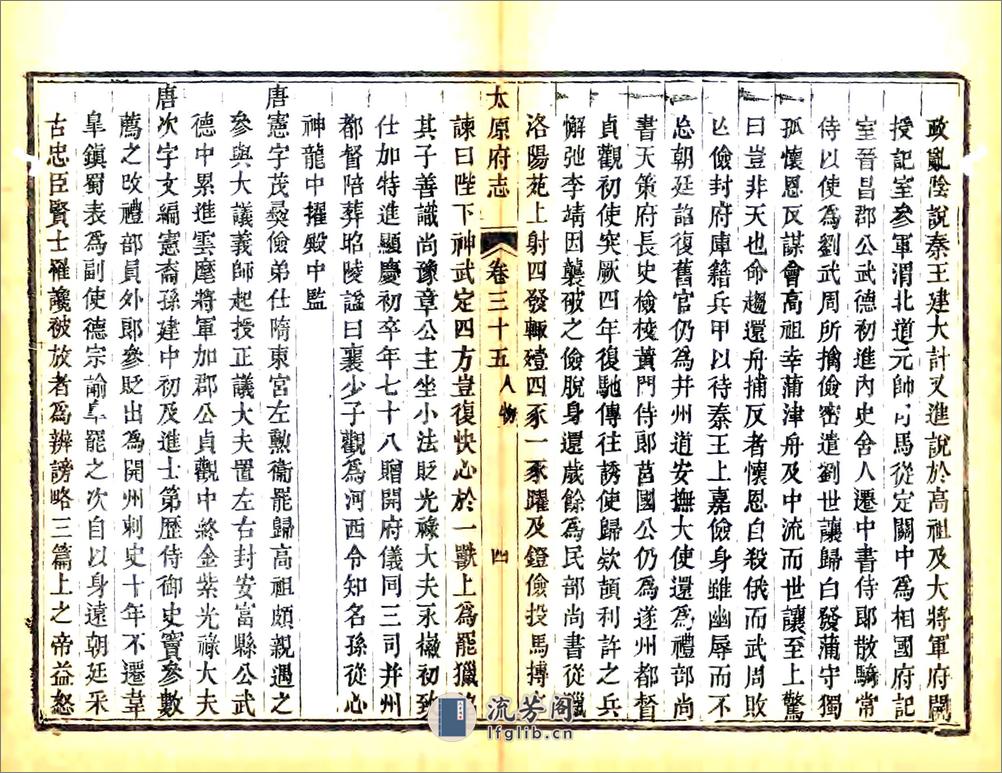 政亂陰說秦王建大計又進說於高祖及大將軍府開
授記室參軍渭北道元帥司馬從定關中為相國府記
室晉昌郡公武德初進內史舍人遷中書侍郎散騎常
侍以使為劉武周所擒儉密遣劉世讓歸白發蒲守獨
孤懷恩反謀會高祖幸蒲津舟及中流而世讓至上驚
曰豈非天也命趨還舟捕反者懷恩自殺俄而武周敗
亾儉封府庫籍兵甲以待秦王上嘉儉身雖幽辱而不
忘朝廷詔復舊官仍為并州道安撫大使還為禮部尚
書天策府長史檢校黃門侍郎莒國公仍為遂州都督
貞觀初使突厥四年復馳傳往誘使歸欵頡利許之兵
懈弛李靖因襲破之儉脫身還歲餘為民部尚書從獵
洛陽苑上射四發輒殪四豕一豕躍及鐙儉投馬搏
太原府志 卷三十五 人物 四
諫曰陛下神武定四方豈復快心於一獸上為罷獵
其子善識尚豫章公主坐小法貶光祿大夫永徽初致
仕加特進顯慶初卒年七十八贈開府儀同三司并州
都督陪葬昭陵謚曰襄少子觀為河西令知名孫從心
神龍中擢殿中監
唐憲字茂彝儉弟仕隋東宮左勳衛罷歸高祖頗親遇之
參與大議義師起授正議大夫置左右封安富縣公武
德中累進雲麾將軍加郡公貞觀中終金紫光祿大夫
唐次字文編憲裔孫建中初及進士第歷侍御史竇參數
薦之改禮部員外郎參貶出為開州刺史十年不遷韋
臯鎮蜀表為副使德宗諭臯罷之次自以身遠朝廷采
古忠臣賢士罹讒被放者為辨謗略三篇上之帝益怒
流芳阁
lfglib.cn